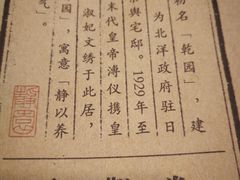 初名「乾园」，建
为北洋政府驻日
宗舆宅邸。1929年至
末代皇帝溥仪携皇
淑妃文绣于此居，
园」，寓意「静以养
气」。